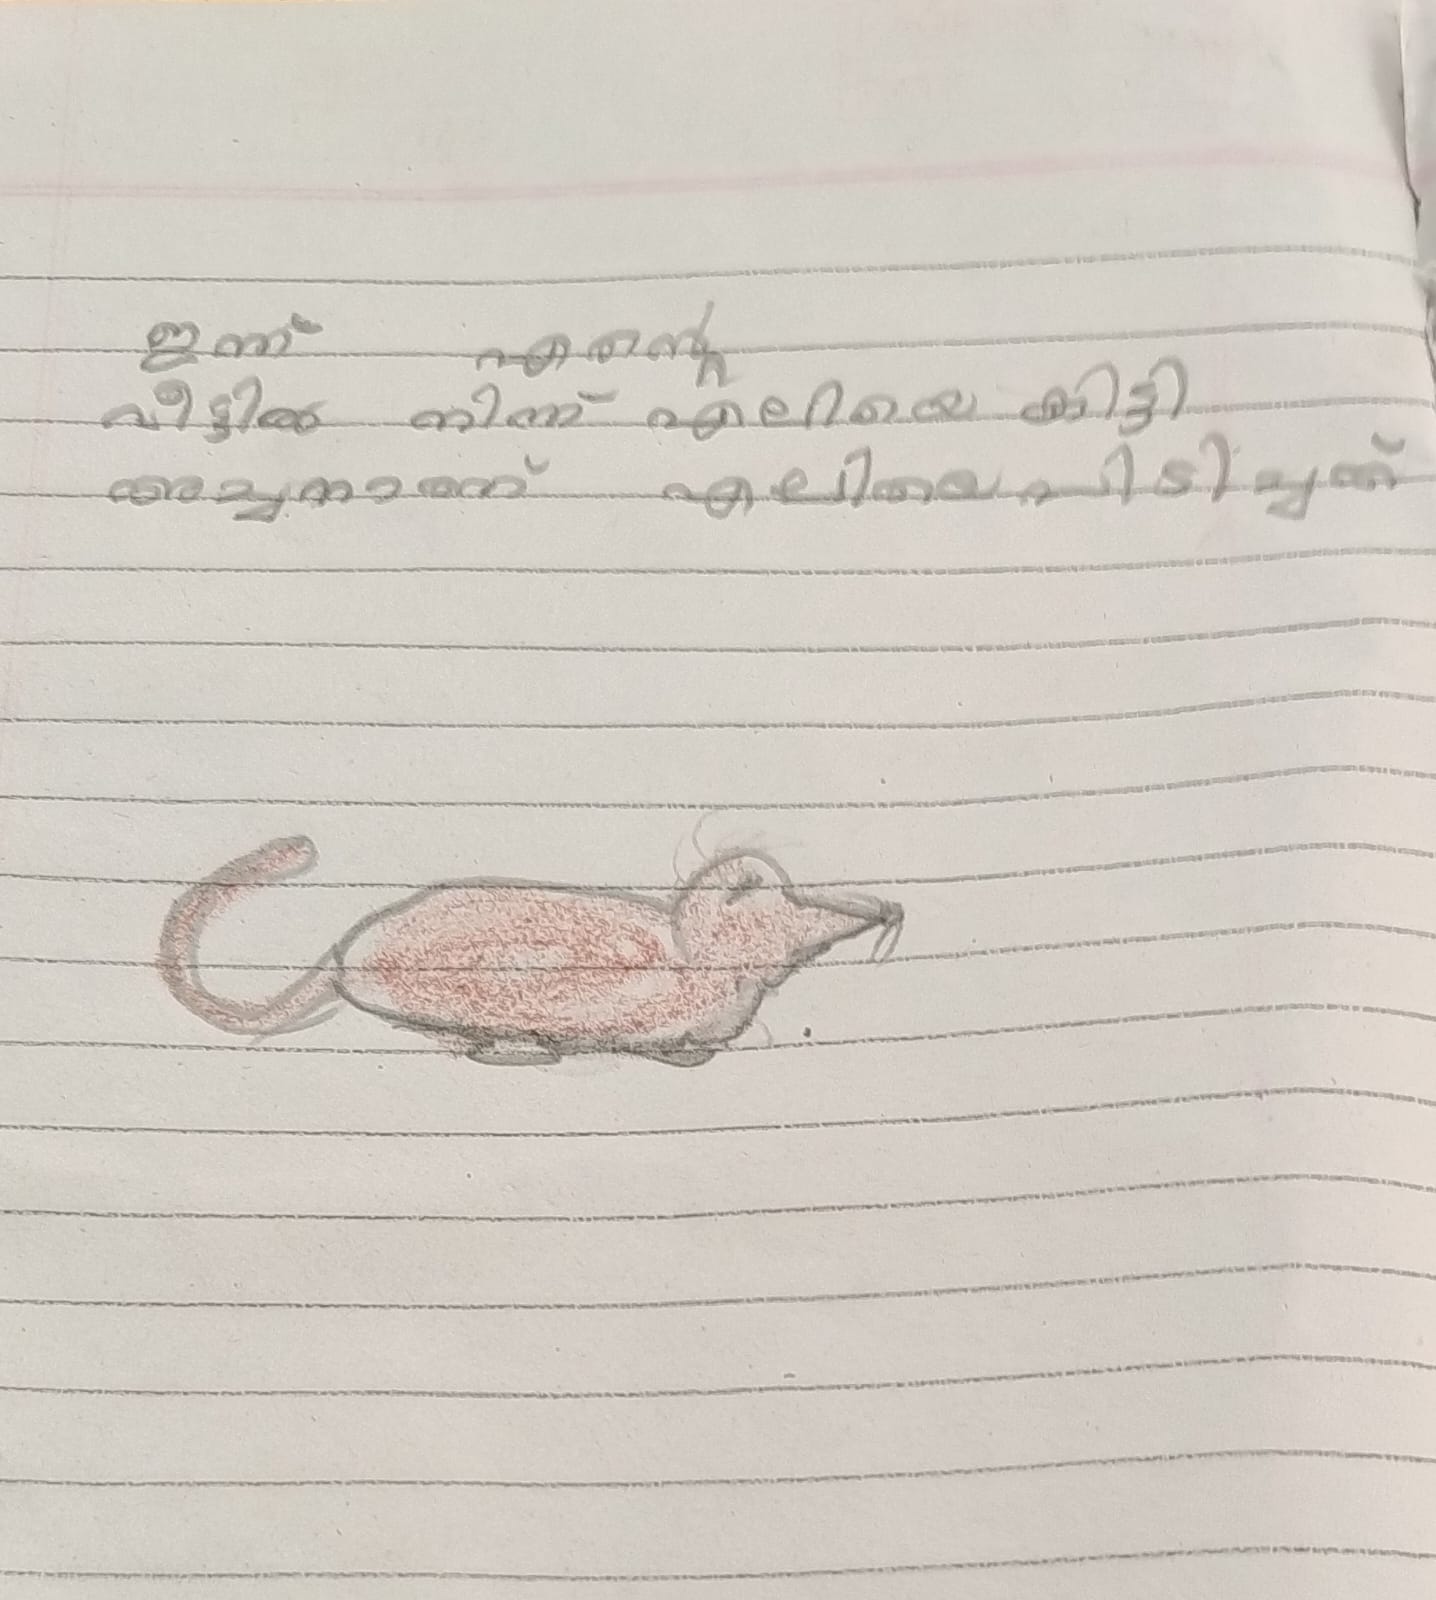 ഇന്ന് എന്റെ
വീട്ടിൽ നിന്ന് എലിയെ കിട്ടി
അച്ഛനാണ് എലിയെ പിടിച്ചത്